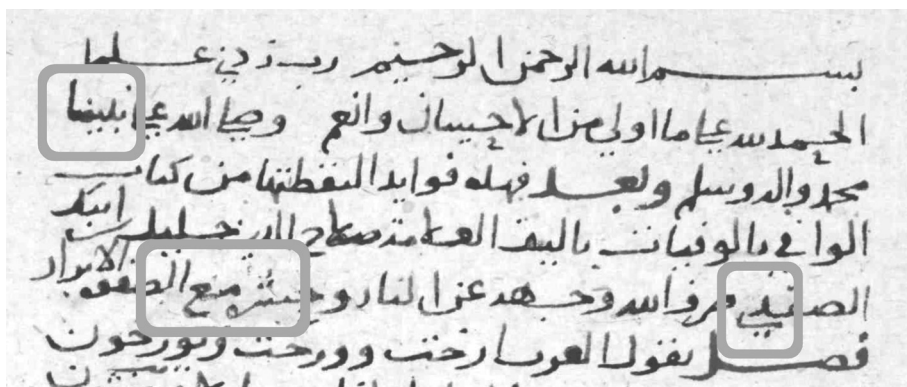 بسم الله الرحمن الرحيم رب زدني علما
الحمد لله على ما اولى من الاحسان وانعم وصلى الله على نبينا
محمد واله وسلم وبعد فهذه فوايد التقطتها من كتاب
الوافي بالوفيات تاليف العلامة صلاح الدين خليل بن ايبك
الصفدي وجهه عن النار وحشره مع الصفوة الابرار
فصل يقول العرب ارخت وورخت ويورخون